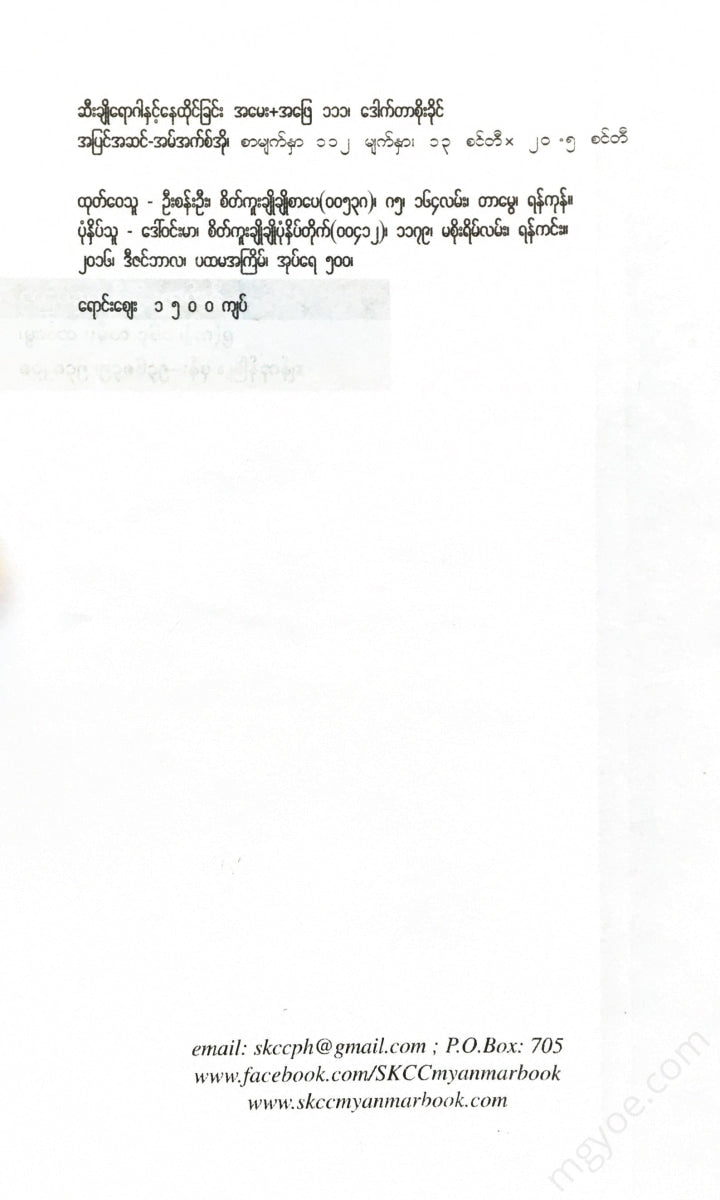 ဆီးချိုရောဂါနှင့်နေထိုင်ခြင်း အမေး+အဖြေ ၁၁၁၊ ဒေါက်တာစိုးခိုင်
အပြင်အဆင်-အမ်အက်စ်အို၊ စာမျက်နှာ ၁၁၂ မျက်နှာ၊ ၁၃ စင်တီ× ၂၀.၅ စင်တီ
ထုတ်ဝေသူ - ဦးစန်းဦး၊ စိတ်ကူးချိုချိုစာပေ(၀၀၅၃၈)၊ ဂ၅၊ ၁၆၄လမ်း၊ တာမွေ၊ ရန်ကုန်။
ပုံနှိပ်သူ - ဒေါ်ဝင်းမာ၊ စိတ်ကူးချိုချိုပုံနှိပ်တိုက်(၀၀၄၁၂)၊ ၁၁၇၉၊ မစိုးရိမ်လမ်း၊ ရန်ကင်း။
၂၀၁၆၊ ဒီဇင်ဘာလ၊ ပထမအကြိမ်၊ အုပ်ရေ ၅၀၀၊
ရောင်းဈေး ၁၅၀၀ကျပ်
email: skccph@gmail.com ; P.O.Box: 705
www.facebook.com/SKCCmyanmarbook
www.skccmyanmarbook.com
mgyoe.com